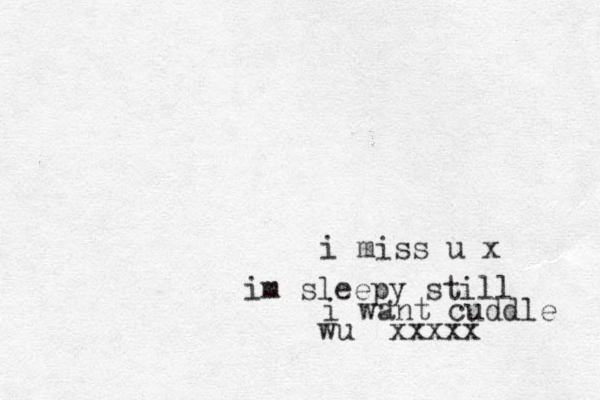 i miss u x
im sleepy still
i want cuddle
wu xxxxx